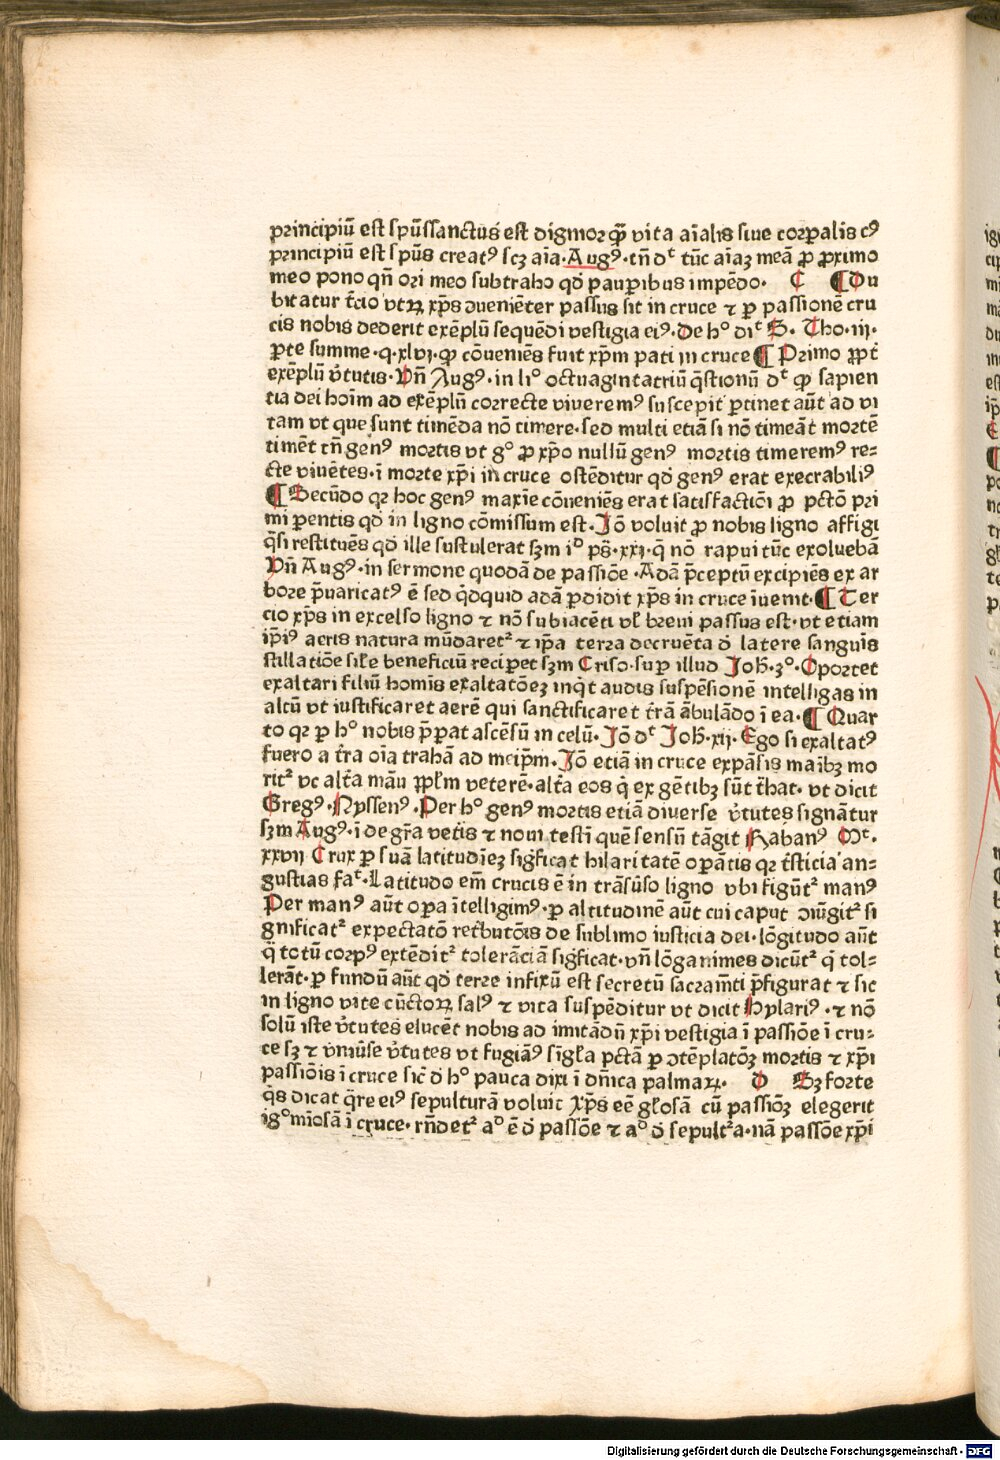 principiū est spūssanctus est dignior qȝ vita aīalis siue corꝑalis cꝰ
principiū est spūs creatꝰ scꝫ aīa·Augꝰ·tn̄ dᵗ tūc aīaꝫ meā ꝓ ꝓximo
meo pono qn̄ ori meo subtraho qd̄ pauꝑibus impēdo· C ¶Du
bitatur t̄cio vtꝝ xp̄s ↄueniēter passus sit in cruce ⁊ ꝑ passionē cru
cis nobis dederit exēplū sequēdi vestigia eiꝰ·De h° diᵗ S· Tho·iij·
ꝑte summe·q·xlvj·ꝙ cōueniēs fuit xp̄m pati in cruce¶ Primo ꝓpt̄
exēplū v̄tutis·Vn̄ Augꝰ·in li° octuagintatriū q̄stionū dᵗ ꝙ sapien
tia dei hoīm ad exēplū correcte viueremꝰ suscepit ꝑtinet aūt ad vi
tam vt que sunt timēda nō timere·sed multi etiā si nō timeāt mortē
timēt tn̄ genꝰ mortis vt g° ꝓ xp̄o nullū genꝰ mortis timeremꝰ re⸗
cte viuētes·ī morte xp̄i in cruce ostēditur qd̄ genꝰ erat execrabiliꝰ
¶Secūdo qꝛ hoc genꝰ maxīe cōueniēs erat satisfactiōi ꝓ pctō pri
mi ꝑentis qd̄ in ligno cōmissum est·Jō voluit ꝓ nobis ligno affigi
q̄si restituēs qd̄ ille sustulerat sꝫm iᵈ ps̄·xxj·q̄ nō rapui tūc exoluebā
Vn̄ Augꝰ·in sermone quodā de passiōe·Adā p̄ceptū excipiēs ex ar
bore p̄uaricatꝰ ē sed q̄dquid adā ꝑdidit xp̄s in cruce īuenit·¶Ter
cio xp̄s in excelso ligno ⁊ nō subiacēti vl̄ breui passus est·vt etiam
ip̄iꝰ aeris natura mūdaretᷣ ⁊ ip̄a terra decruēta d̄ latere sanguīs
stillatiōe sil̄e beneficiū reciꝑet sꝫm Criso·suꝑ illud Joh̄·3°·Oportet
exaltari filiū homīs exaltatōeꝫ inq̄t audis suspēsionē intelligas in
altū vt iustificaret aerē qui sanctificaret t̄rā ābulādo ī ea·¶ Quar
to qꝛ ꝑ h° nobis p̄ꝑat ascēsū in celū·Jō dᵗ Joh̄·xij·Ego si exaltatꝰ
fuero a t̄ra oīa trahā ad meip̄m·Jō etiā in cruce expāsis maībꝫ mo
ritᷣ vt alt̄a māu ꝓpl̄m veterē·alt̄a eos q̄ ex gētibꝫ sūt t̄hat·vt dicit
Gregꝰ·Nyssenꝰ·Per h° genꝰ mortis etiā diuerse v̄tutes signātur
sꝫm Augꝰ·ī de gr̄a vetīs ⁊ noui testī quē sensū tāgit Rabanꝰ Mᵗ·
xxvij Crux ꝑ suā latitudīeꝫ sigficat hilaritatē oꝑātis qꝛ t̄sticia an⸗
gustias faᵗ·Latitudo em̄ crucis ē in trāsūso ligno vbi figūtᷣ manꝰ
Per manꝰ aūt oꝑa ītelligimꝰ·ꝑ altitudinē aūt cui caput ↄiūgitᷣ si
gnificatᷣ expectatō ret̄butōis de sublimo iusticia dei·lōgitudo aūt
q̄ totū corpꝰ extēditᷣ tolerāciā sigficat·vn̄ lōganimes dicūtᷣ q̄ tol⸗
lerāt·ꝑ fundū aūt qd̄ terre infixū est secretū sacram̄ti p̄figurat ⁊ sic
in ligno vite cūctoꝝ salꝰ ⁊ vita suspēditur vt dicit Hylariꝰ·⁊ nō
solū iste v̄tutes elucēt nobis ad imitādū xp̄i vestigia ī passiōe ī cru⸗
ce sꝫ ⁊ vniūse v̄tutes vt fugiāꝰ sīgl̄a pctā ꝑ ↄtēplatōꝫ mortis ⁊ xp̄i
passiōis ī cruce sic̄ d̄ h° pauca dixi ī dn̄ica palmaꝝ· D Sꝫ forte
q̄s dicat q̄re eiꝰ sepulturā voluit xp̄s eē gl̄osā cū passiōꝫ elegerit
ig°miōsā ī cruce·rn̄detᷣ a° ē d̄ passōe ⁊ a° d̄ sepultᷣa·nā passōe xp̄i
Digitalisierung gefördert durch die Deutsche Forschungsgemeinschaft · DFG